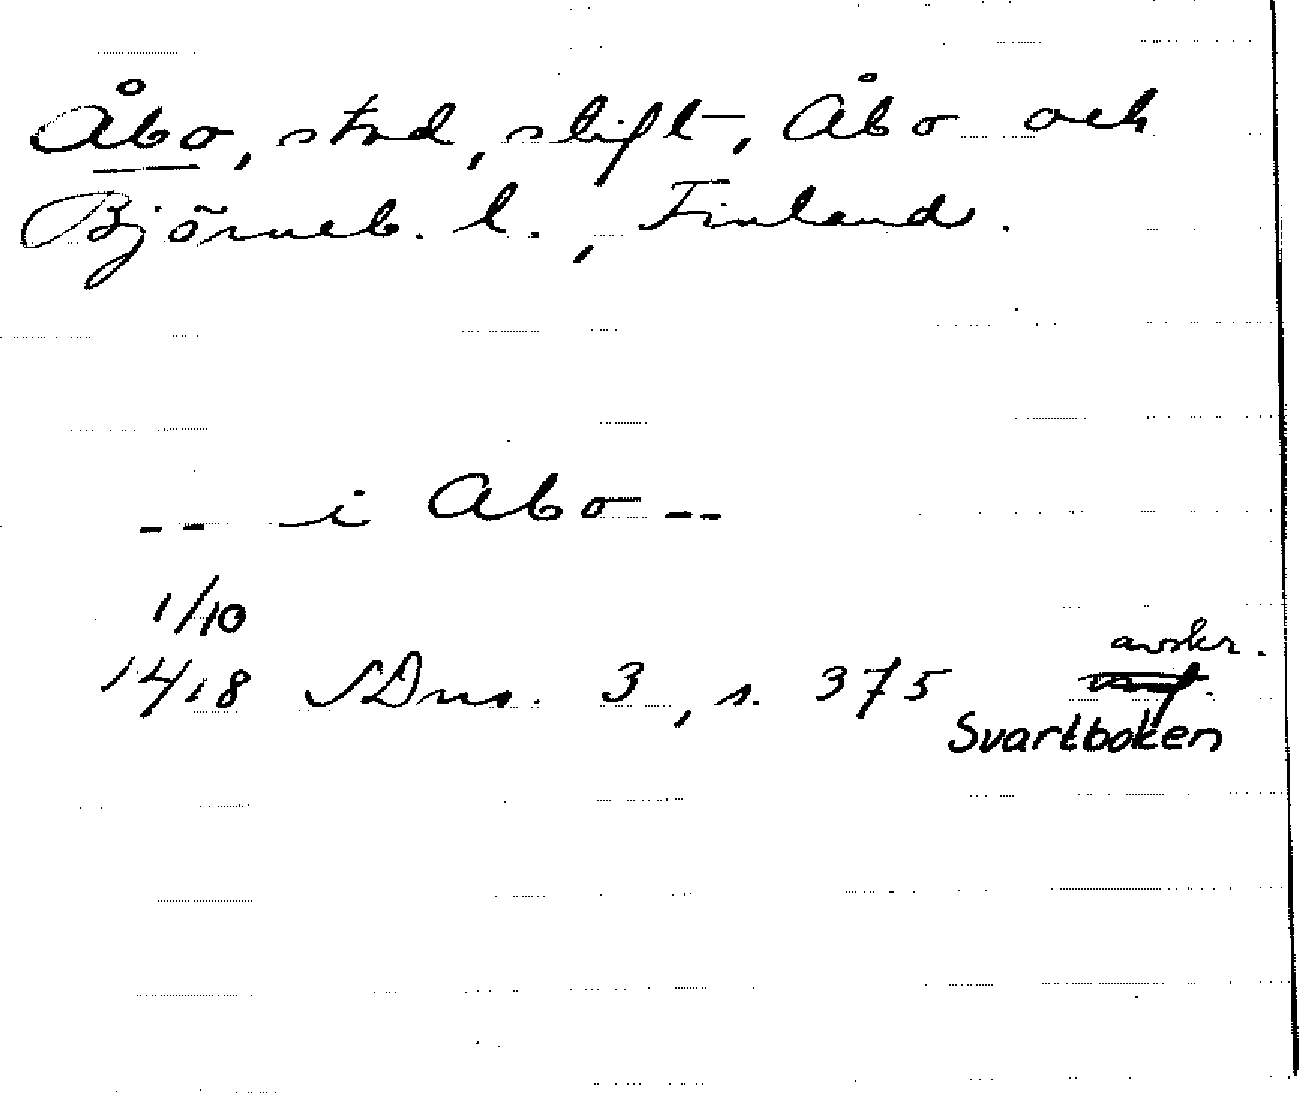 Åbo, stad, stift, Åbo och
Björneb. l., Finland.
-- i Abo --
1/10
1418 SDns. 3, s. 375 avskr.
Svartboken